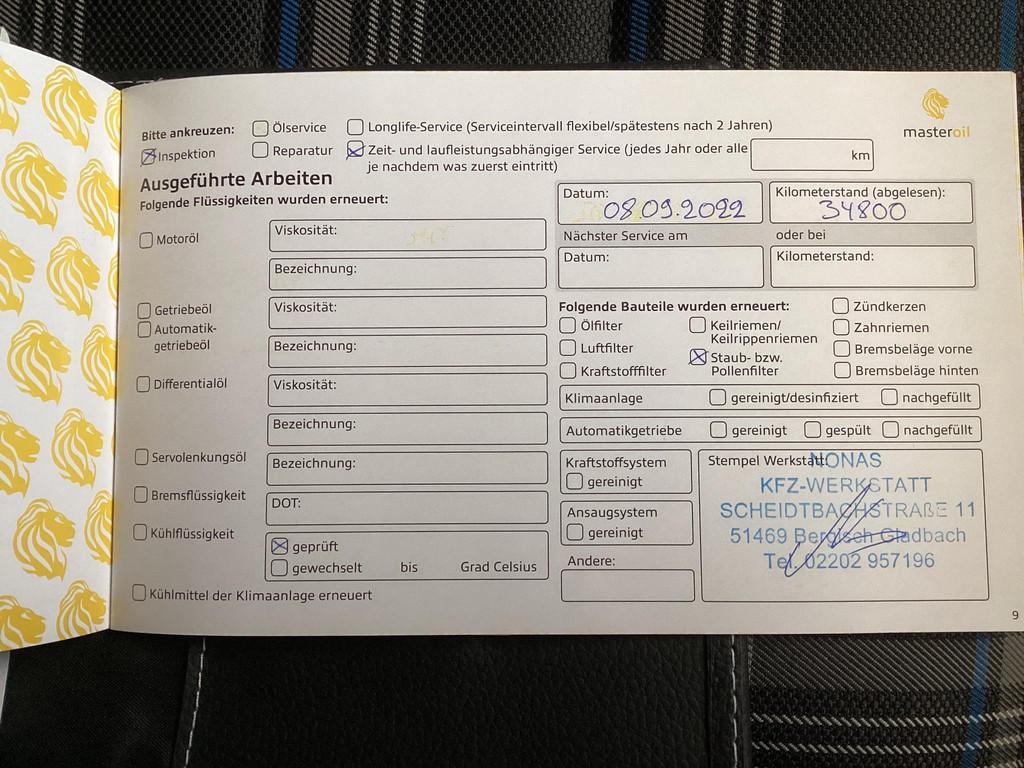 masteroil
Bitte ankreuzen:
Ölservice
Longlife-Service (Serviceintervall flexibel/spätestens nach 2 Jahren)
Inspektion
Reparatur
Zeit- und laufleistungsabhängiger Service (jedes Jahr oder alle
km
je nachdem was zuerst eintritt)
Ausgeführte Arbeiten
Folgende Flüssigkeiten wurden erneuert:
Motoröl
Viskosität:
Bezeichnung:
Getriebeöl
Automatik-
getriebeöl
Viskosität:
Bezeichnung:
Differentialöl
Viskosität:
Bezeichnung:
Servolenkungsöl
Bezeichnung:
Bremsflüssigkeit
DOT:
Kühlflüssigkeit
geprüft
gewechselt bis Grad Celsius
Kühlmittel der Klimaanlage erneuert
Datum:
08.09.2022
Kilometerstand (abgelesen):
34800
Nächster Service am
oder bei
Datum:
Kilometerstand:
Folgende Bauteile wurden erneuert:
Ölfilter
Luftfilter
Kraftstofffilter
Keilriemen/
Keilrippenriemen
Staub- bzw.
Pollenfilter
Zündkerzen
Zahnriemen
Bremsbeläge vorne
Bremsbeläge hinten
Klimaanlage
gereinigt/desinfiziert
nachgefüllt
Automatikgetriebe
gereinigt
gespült
nachgefüllt
Kraftstoffsystem
gereinigt
Ansaugsystem
gereinigt
Andere:
Stempel Werkstatt:
NONAS
KFZ-WERKSTATT
SCHEIDTBACHSTRAßE 11
51469 Bergisch Gladbach
Tel. 02202 957196
9